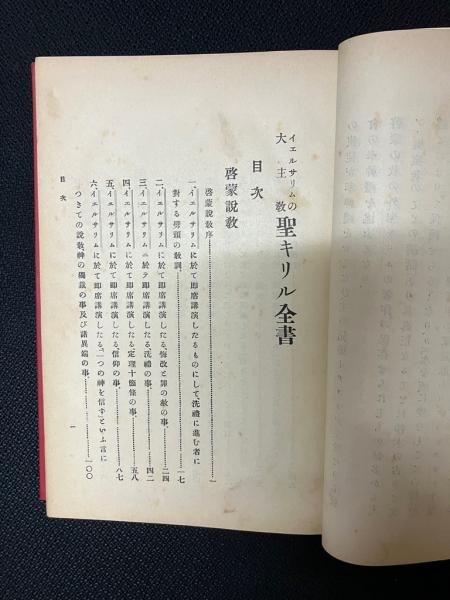 イエルサリムの
大主教
聖キリル全書
目次
啓蒙説教
啓蒙説教序………………一
一、イエルサリムに於て即席講演したるものにして、洗禮に進む者に
對する劈頭の教訓………………一七
二、イエルサリムに於て即席講演したる、悔改と罪の赦の事、………二四
三、イエルサリムニ於テ即席講演したる、洗禮の事、………四二
四、イエルサリムに於て即席講演したる、定理十箇條の事、………五八
五、イエルサリムに於て即席講演したる、信仰の事、………八七
六、イエルサリムに於て即席講演したる、「一つの神を信ず」といふ言に
つきての説教神の獨裁の事及び諸異端の事、………一〇〇
目次
一